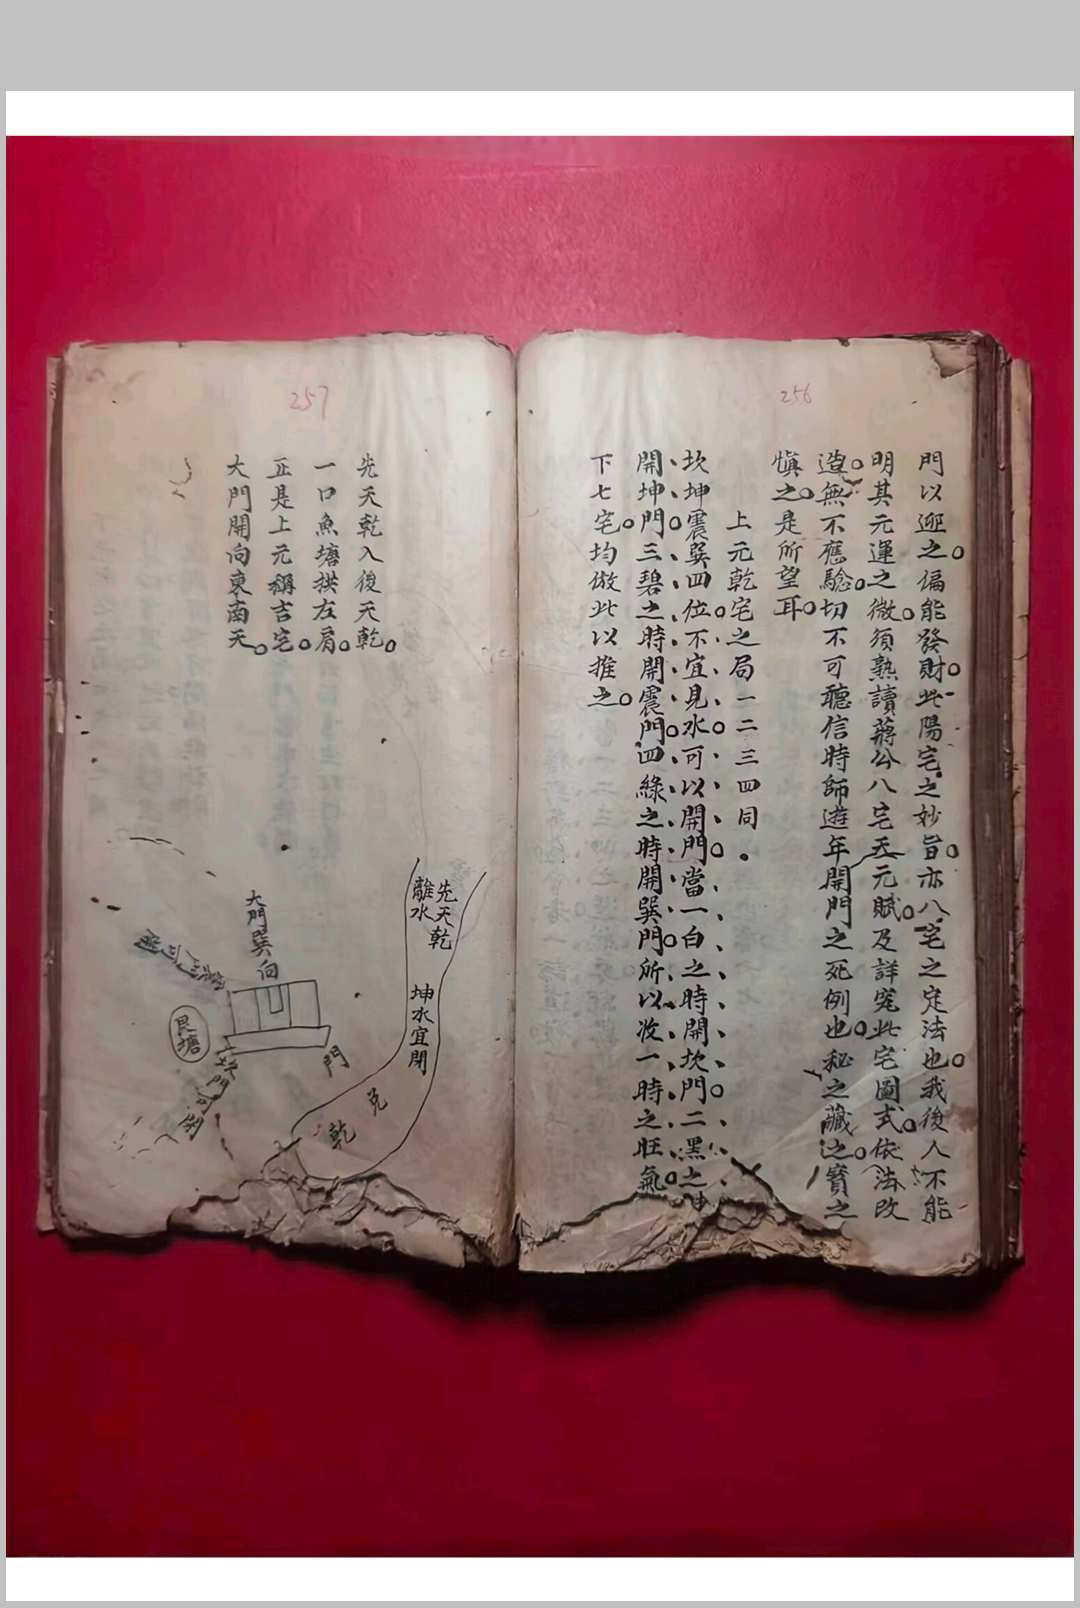 256
門以迎之偏能發財此陽宅之妙旨亦八宅之定法也我後人不能
明其元運之微須熟讀蔣公八宅天元賦及詳究此宅圖式依法改
造無不應驗切不可聽信時師遊年開門之死例也秘之藏之寶之
慎之是所望耳
上元乾宅之局一二三四同
坎坤震巽四位不宜見水可以開門當一白之時開坎門二黑之時
開坤門三碧之時開震門四綠之時開巽門所以收一時之旺氣
下七宅均倣此以推之
257
先天乾入後天乾
一口魚塘拱左肩
正是上元稱吉宅
大門開向東南天
先天乾
離水
坤水宜閉
兌
乾
門
大門巽向
艮塘
坎門可開